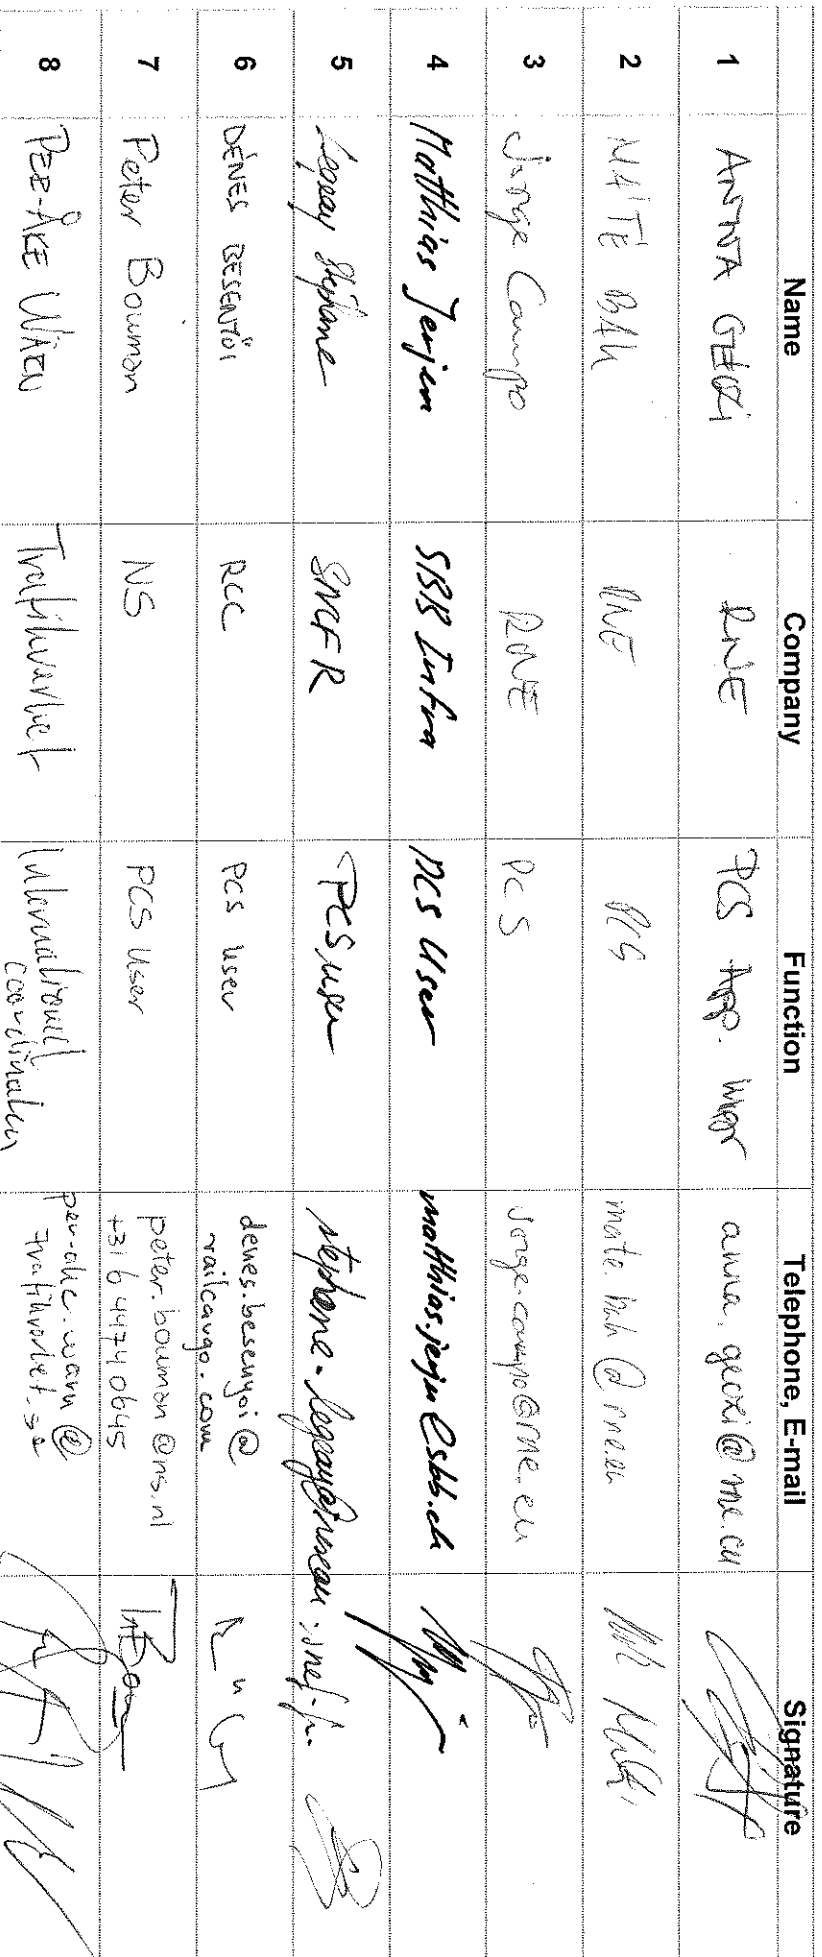 Name Company Function Telephone, E-mail Signature
1 ANNA GECZI RNE PCS App. mgr anna.geczi@rne.eu
2 MÁTÉ BAK RNE PCS mate.bak@rne.eu
3 Jorge Campo RNE PCS jorge.campo@rne.eu
4 Matthias Jerjen SBB Infra PCS User matthias.jerjen@sbb.ch
5 Legeay Stéphane SNCF R PCS user stephane.legeay@reseau.sncf.fr
6 DÉNES BESENYŐI RCC PCS user denes.besenyoi@
railcargo.com
7 Peter Bouman NS PCS User peter.bouman@ns.nl
+31644740645
8 PER-ÅKE WÄRN Trafikverket International
coordinator per-ake.warn@
trafikverket.se